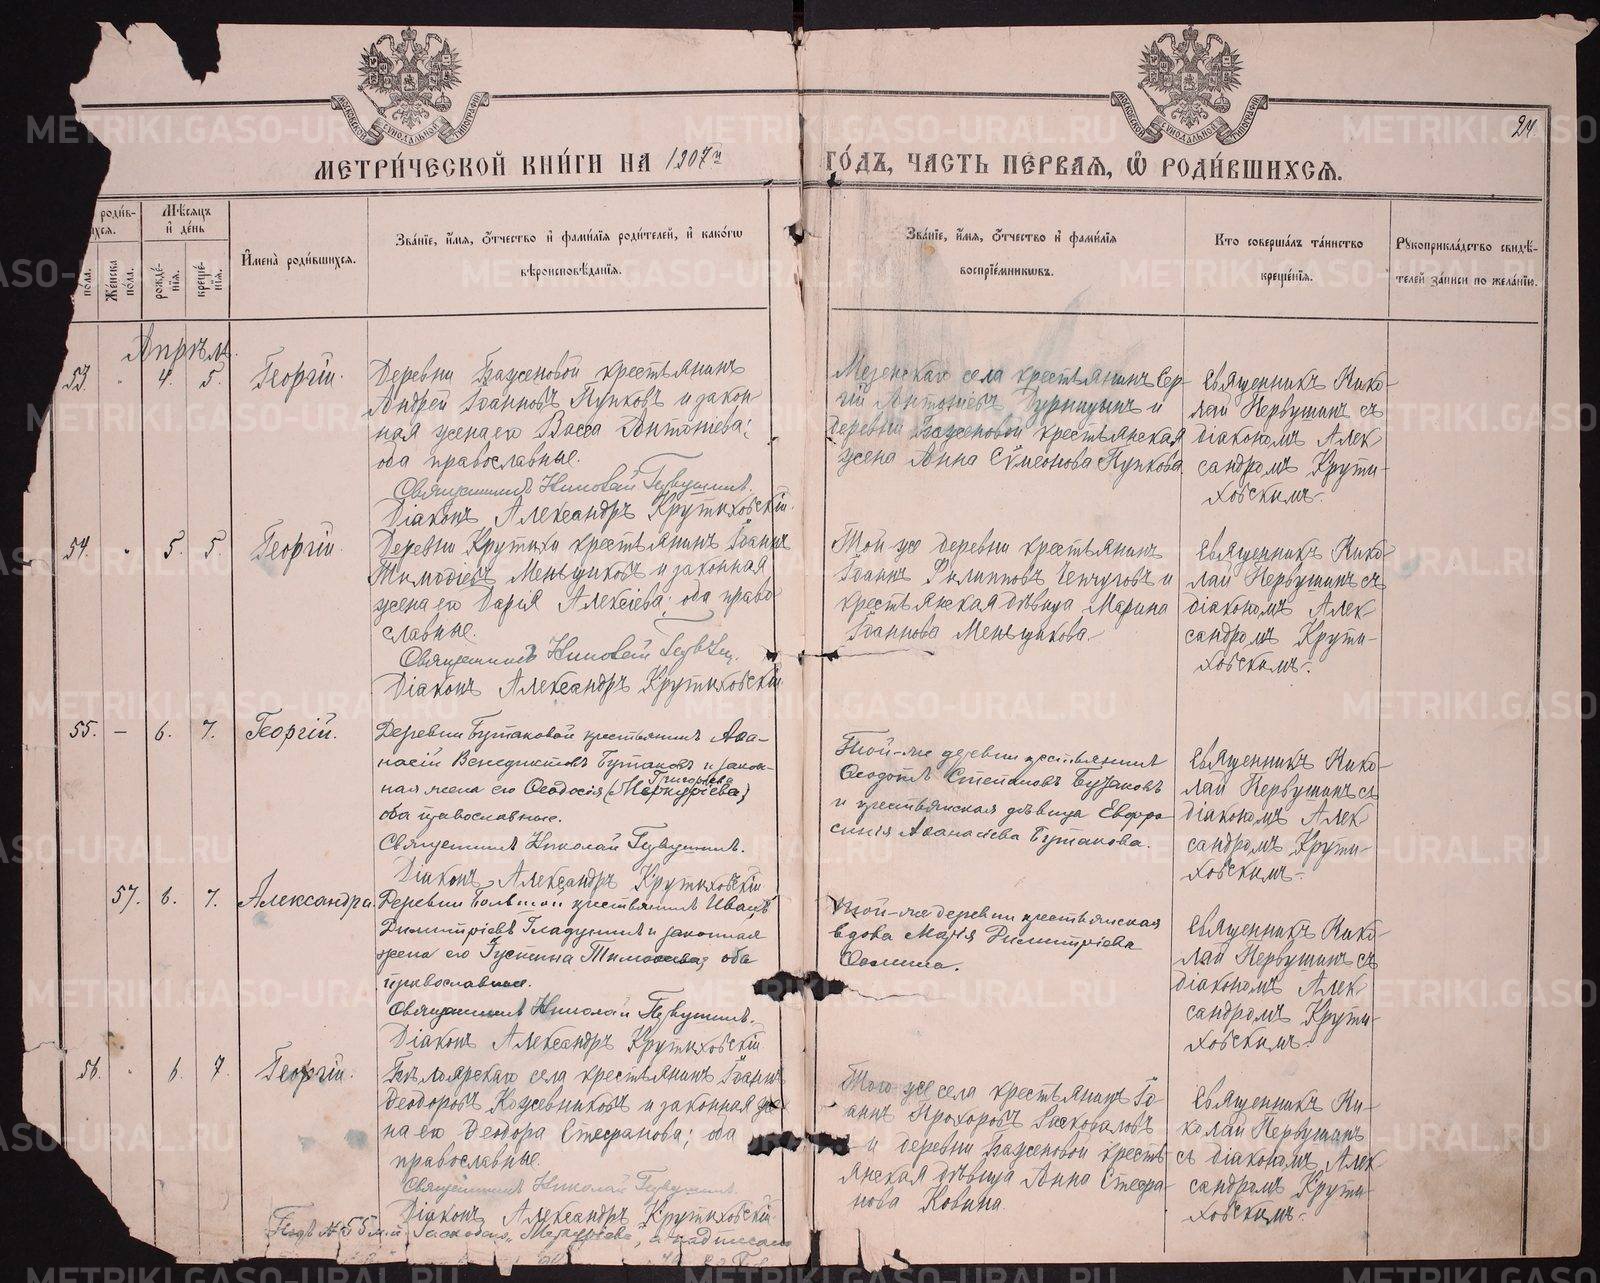 24
МЕТРИЧЕСКОЙ КНИГИ НА 1907й ГОДЪ, ЧАСТЬ ПЕРВАЯ, Ѡ РОДИВШИХСЯ.
Мѣсяцъ и день
Женска пола.
рожденія.
крещенія.
Имена родившихся.
Званіе, имя, отчество и фамилія родителей, и какогѡ вѣроисповѣданія.
Званіе, имя, отчество и фамилія воспріемниковъ.
Кто совершалъ таинство крещенія.
Рукоприкладство свидѣтелей записи по желанію.
Апрѣль
53. 4. 5. Георгій.
Деревни Баженовой крестьянинъ
Андрей Іоанновъ Пупковъ и закон
ная жена его Васса Антоніева;
оба православные.
Священникъ Николай Первушинъ.
Діаконъ Александръ Крутиховскій.
Мезенскаго села крестьянинъ Сер-
гій Антоніевъ и
деревни Баженовой крестьянская
жена Анна Сѵмеонова Пупкова
Священникъ Нико-
лай Первушинъ съ
діакономъ Алек
сандромъ Крути-
ховскимъ.
54. 5. 5. Георгій
Деревни Крутихи крестьянинъ Іоаннъ
Тимоѳіевъ Меньщиковъ и законная
жена его Дарія Алексіева; оба право
славные.
Священникъ Николай
Діаконъ Александръ Крутиховскій
Той же деревни крестьянинъ
Іоаннъ Филипповъ Ченчуговъ и
крестьянская дѣвица Марина
Іоаннова Меньщикова
Священникъ Нико-
лай Первушинъ съ
діакономъ Алек
сандромъ Крути-
ховскимъ.
55. – 6. 7. Георгій.
Деревни Бутаковой крестьянинъ Аѳа-
насій Венедиктовъ Бутаковъ и закон-
Григорьева
ная жена его Ѳеодосія (Меркуріева)
оба православные.
Священникъ Николай Первушинъ.
Діаконъ Александръ Крутиховскій
Той-же деревни крестьянинъ
Ѳеодотъ Степановъ Бутаковъ
и крестьянская дѣвица Евфро
синія Аѳанасіева Бутакова.
Священникъ Нико-
лай Первушинъ съ
діакономъ Алек
сандромъ Крути-
ховскимъ.
57. 6. 7. Александра.
Деревни крестьянинъ Иванъ
Димитріевъ Гладунинъ и законная
жена его Іустина Тимоѳеева; оба
православные.
Священникъ Николай Первушинъ.
Діаконъ Александръ Крутиховскій
Той-же деревни крестьянская
вдова Марія Димитріева
Священникъ Нико-
лай Первушинъ съ
діакономъ Алек
сандромъ Крути-
ховскимъ.
56. 6. 7. Георгій.
Бѣлоярскаго села крестьянинъ Іоаннъ
Ѳеодоровъ Кожевниковъ и законная же
на его Ѳеодора Стефанова; оба
православные.
Священникъ Николай Первушинъ.
Діаконъ Александръ Крутиховскій
Того же села крестьянинъ Іо-
аннъ Прохоровъ Расковаловъ
и деревни Баженовой кресть
янская дѣвица Анна Стефа-
нова Ковина
Священникъ Ни-
колай Первушинъ
съ діакономъ Алек
сандромъ Крути-
ховскимъ.
№ 55 „Меркуріева", а
METRIKI.GASO-URAL.RU